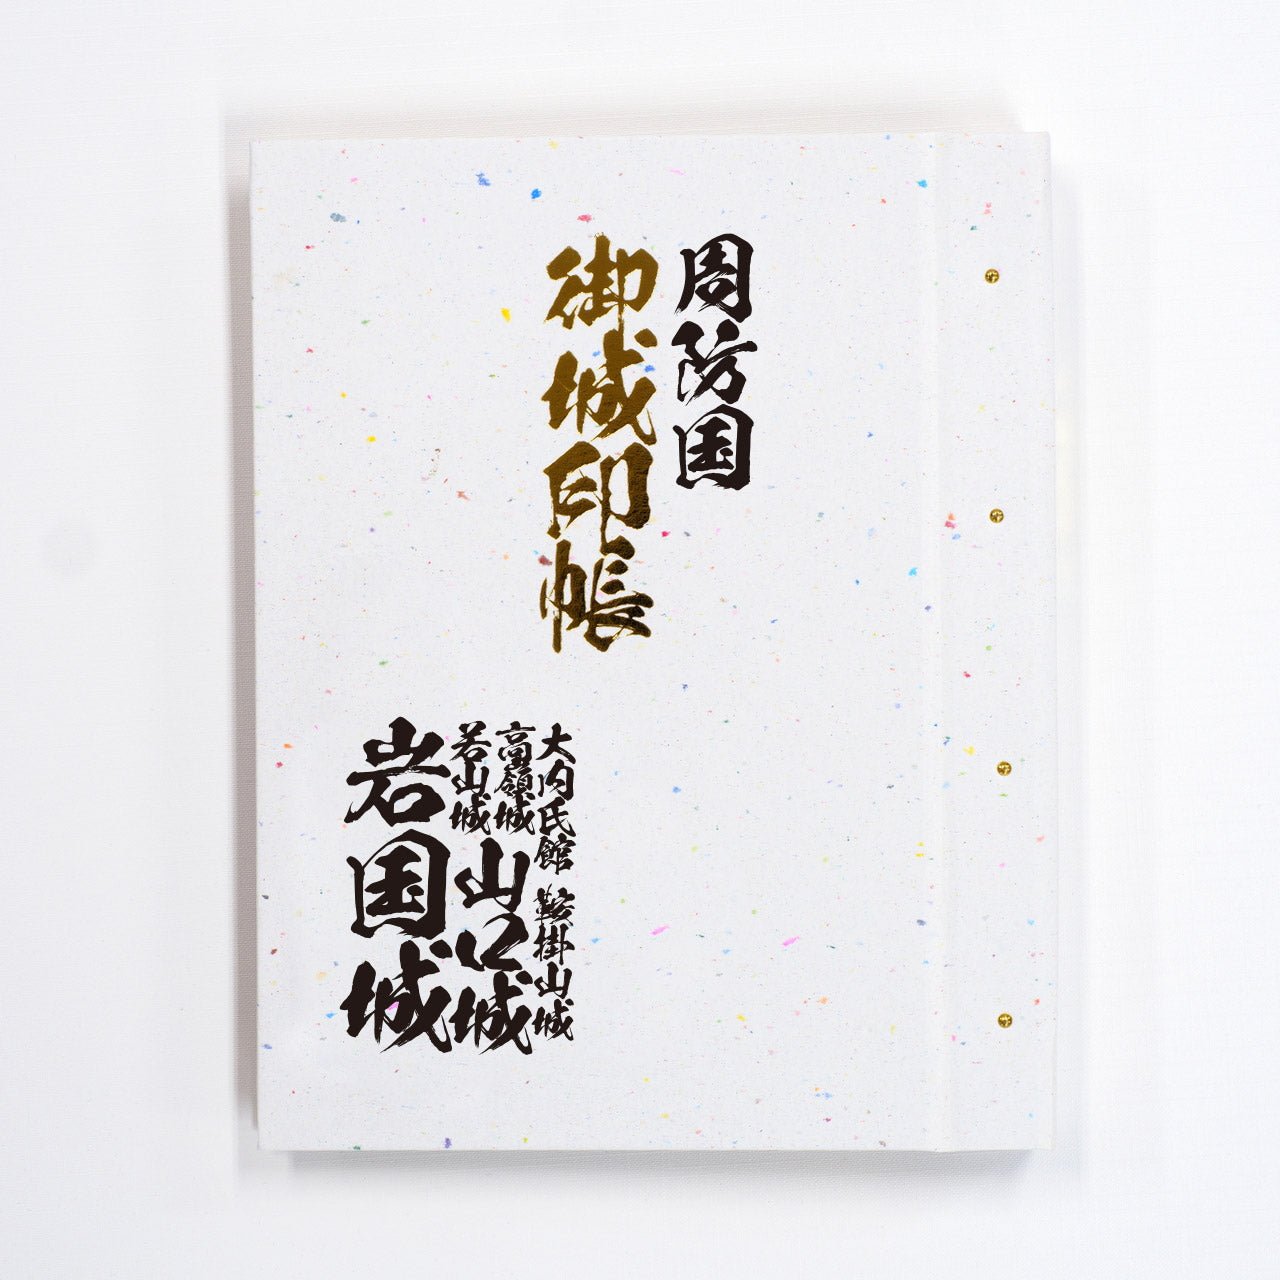 周防国
御城印帳
大内氏館 鞍掛山城
高嶺城
若山城
山口城
岩国城